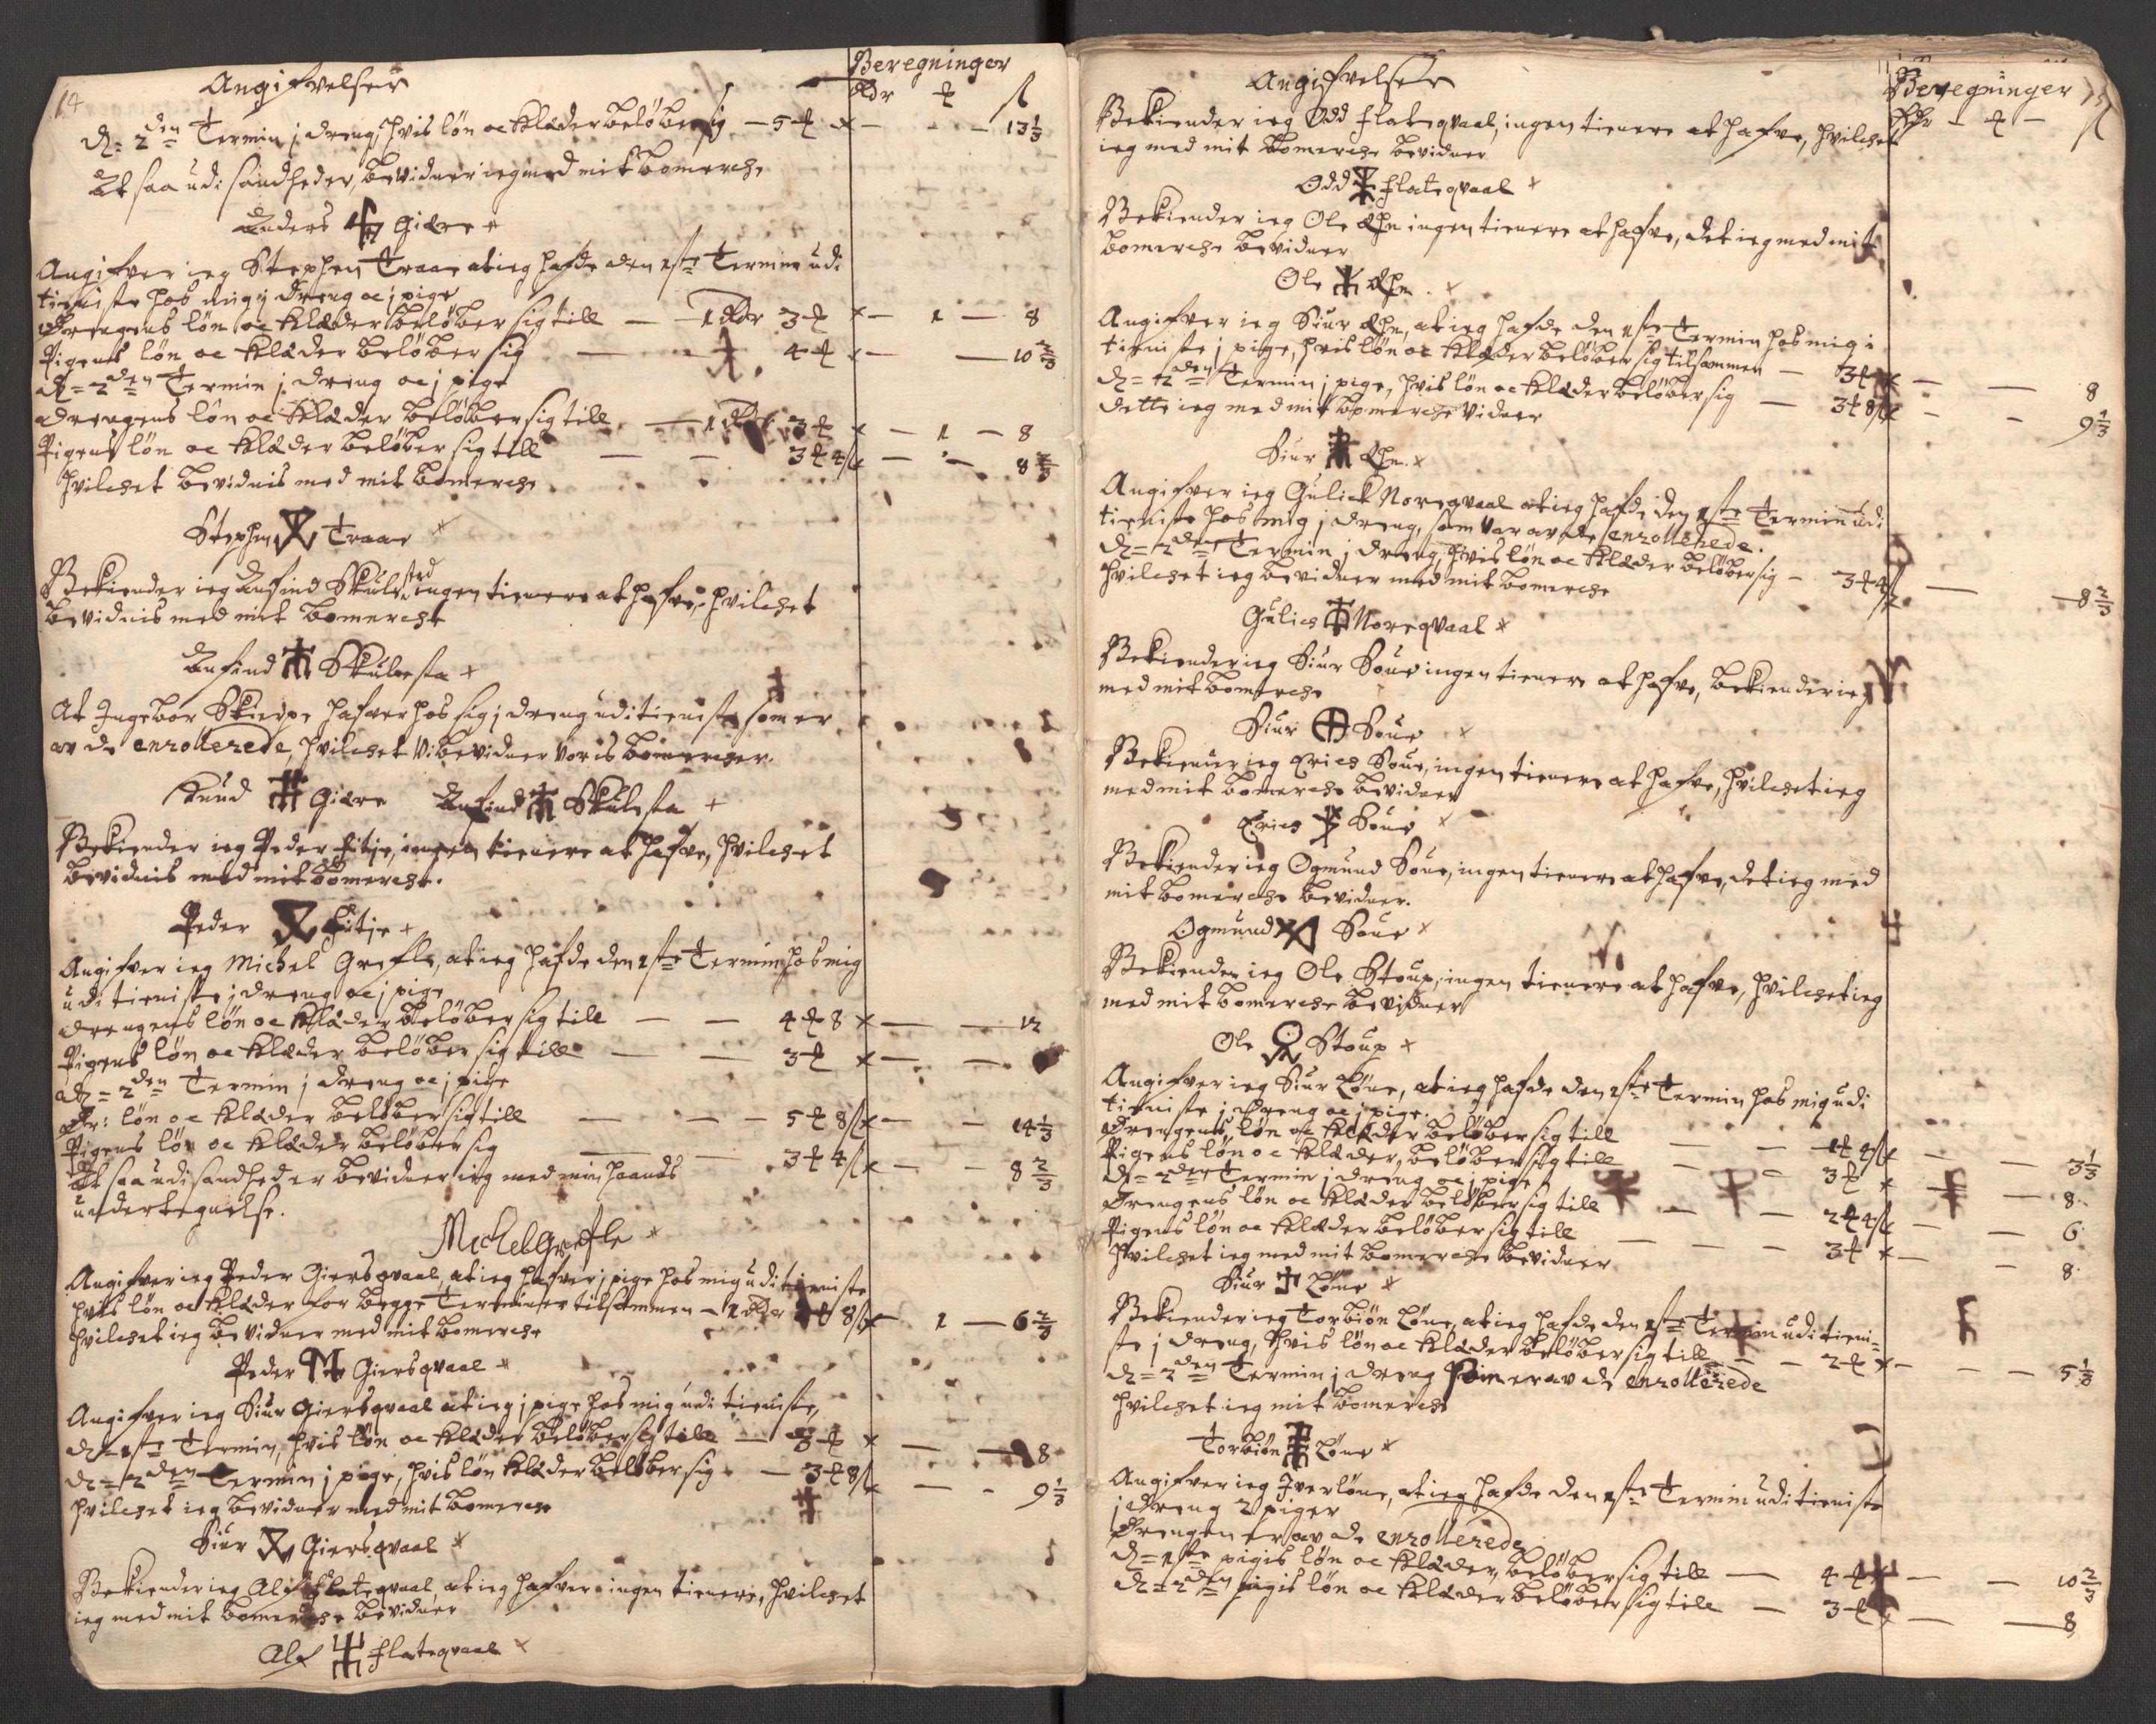 14
Angifvelser
Beregninger
Rdr ₰ ß
D= 2den Termin j dreng, hvis løn oc klæder beløber sig — 5 ₰ × — - - 13 1/3
At saa udi sandheden, bevidner ieg med mit bomerche
Anders Giære
Angifver ieg Stephen Traae at ieg hafde den 1ste Termin udi
tieniste hos mig j dreng oc j pige
Drengens løn oc klæder beløber sig till — 1 Rdr 3 ₰ × — 1 — 8
Pigens løn oc klæder beløber sig — 4 ₰ × — — 10 2/3
D= 2den Termin j dreng oc j pige
drengens løn oc klæder beløber sig till — 1 Rdr 3 ₰ × — 1 — 8
Pigens løn oc klæder beløber sig till — 3 ₰ 4 ß × — — 8 2/3
hvilchet bevidnis med mit bomerche
Stephen Traae
Bekiender ieg Anfind Skulestad ingen tienere at hafve, hvilchet
bevidnis med mit bomerche
Anfind Skulesta
At Ingebor Skierpe hafver hos sig j dreng udi tieniste som er
av de enrollerede, hvilchet Vi bevidner Voris bomercher.
Knud Giære Anfind Skulesta
Bekiender ieg Peder Fitje, ingen tienere at hafve, hvilchet
bevidnis med mit bomerche.
Peder Fitje
Angifver ieg Michel Grefle, at ieg hafde den 1ste Termin hos mig
udi tieniste j dreng oc j pige
drengens løn oc klæder beløber sig till — — 4 ₰ 8 × — — 12
Pigens løn oc klæder beløber sig till — — 3 ₰ × — —
D= 2den Termin j dreng oc j pige
Dr: løn oc klæder beløber sig till — — — 5 ₰ 8 ß × — — 14 1/3
Pigens løn oc klæder beløber sig — — 3 ₰ 4 ß × — — 8 2/3
At saa udi sandhed er bevidner ieg med min haands
undertegnelse.
Michel Grefle
Angifver ieg Peder Giersqvaal, at ieg hafver j pige hos mig udi tieniste
hvis løn oc klæder for begge Terminer tilsammen — 1 Rdr 2 ₰ 8 ß × — 1 — 6 2/3
hvilchet ieg bevidner med mit bomerche
Peder Giersqvaal
Angifver ieg Siur Giersqvaal at ieg j pige hos mig udi tieniste,
d= 1ste Termin, hvis løn oc klæder beløber sig till — 3 ₰ × — — 8
D= 2den Termin j pige, hvis løn klæder beløber sig — 3 ₰ 8 ß × — - 9 1/3
hvilchet ieg bevidner med mit bomerche
Siur Giersqvaal
Bekiender ieg Alf Flateqvaal, at ieg hafver ingen tienere, hvilchet
ieg med mit bomerche bevidner
Alf Flateqvaal
15
Angifvelser
Beregninger
Rdr — ₰ — ß
Bekiender ieg Odd Flateqvaal, ingen tienere at hafve, hvilchet
ieg med mit bomerche bevidner
Odd Flateqvaal
Bekiender ieg Ole Æhn ingen tienere at hafve, det ieg med mit
bomerche bevidner
Ole Æhn.
Angifver ieg Siur Æhn, at ieg hafde den 1ste Termin hos mig i
tieniste j pige, hvis løn oc klæder beløber sig tilsammen — 3 ₰ × — — 8
D= 2den Termin j pige, hvis løn oc klæder beløber sig — 3 ₰ 8 ß × — - 9 1/3
dette ieg med mit bomerche vidner
Siur Æhn.
Angifver ieg Gulich Noreqvaal at ieg hafde den 1ste Termin udi
tieniste hos mig j dreng, som var av de enrollerede.
D= 2den Termin j dreng, hvis løn oc klæder beløber sig — 3 ₰ 4 ß — — 8 2/3
hvilchet ieg bevidner med mit bomerche
Gulich Noreqvaal
Bekiender ieg Siur Soue ingen tienere at hafve, bekiender ieg
med mit bomerche
Siur Soue
Bekiener ieg Erich Soue, ingen tienere at hafve, hvilchet ieg
med mit bomerche bevidner
Erich Soue
Bekiender ieg Ogmund Soue, ingen tienere at hafve, det ieg med
mit bomerche bevidner.
Ogmund Soue
Bekiender ieg Ole Stoup, ingen tienere at hafve, hvilchet ieg
med mit bomerche bevidner
Ole Stoup
Angifver ieg Siur Löne, at ieg hafde den 1ste Termin hos mig udi
tieniste j dreng oc j pige.
Drengens løn oc klæder beløber sig till — — 1 ₰ 4 ß × — — 3 1/3
Pigens løn oc klæder, beløber sig till — — 3 ₰ × — — 8
D= 2den Termin j dreng oc j pige
Drengens løn oc klæder beløber sig till — — 2 ₰ 4 ß × — — 6
Pigens løn oc klæder beløber sig till — — 3 ₰ × — — 8
Hvilchet ieg med mit bomerche bevidner
Siur Löne
Bekiender ieg Torbiön Löne, at ieg hafde den 1ste Termin udi tieni-
ste j dreng, hvis løn oc klæder beløber sig till — — 2 ₰ × — — 5 1/3
D= 2den Termin j dreng som er av de enrollerede
hvilchet ieg mit bomerche
Torbiön Löne
Angifver ieg Iver löne, at ieg hafde den 1ste Termin udi tieniste
j dreng 2 piger
Drengen er av de enrollerede
D= 1ste pigis løn oc klæder, beløber sig till — 4 ₰ × — — 10 2/3
D= 2den pigis løn oc klæder beløber sig till — 3 ₰ × — — 8